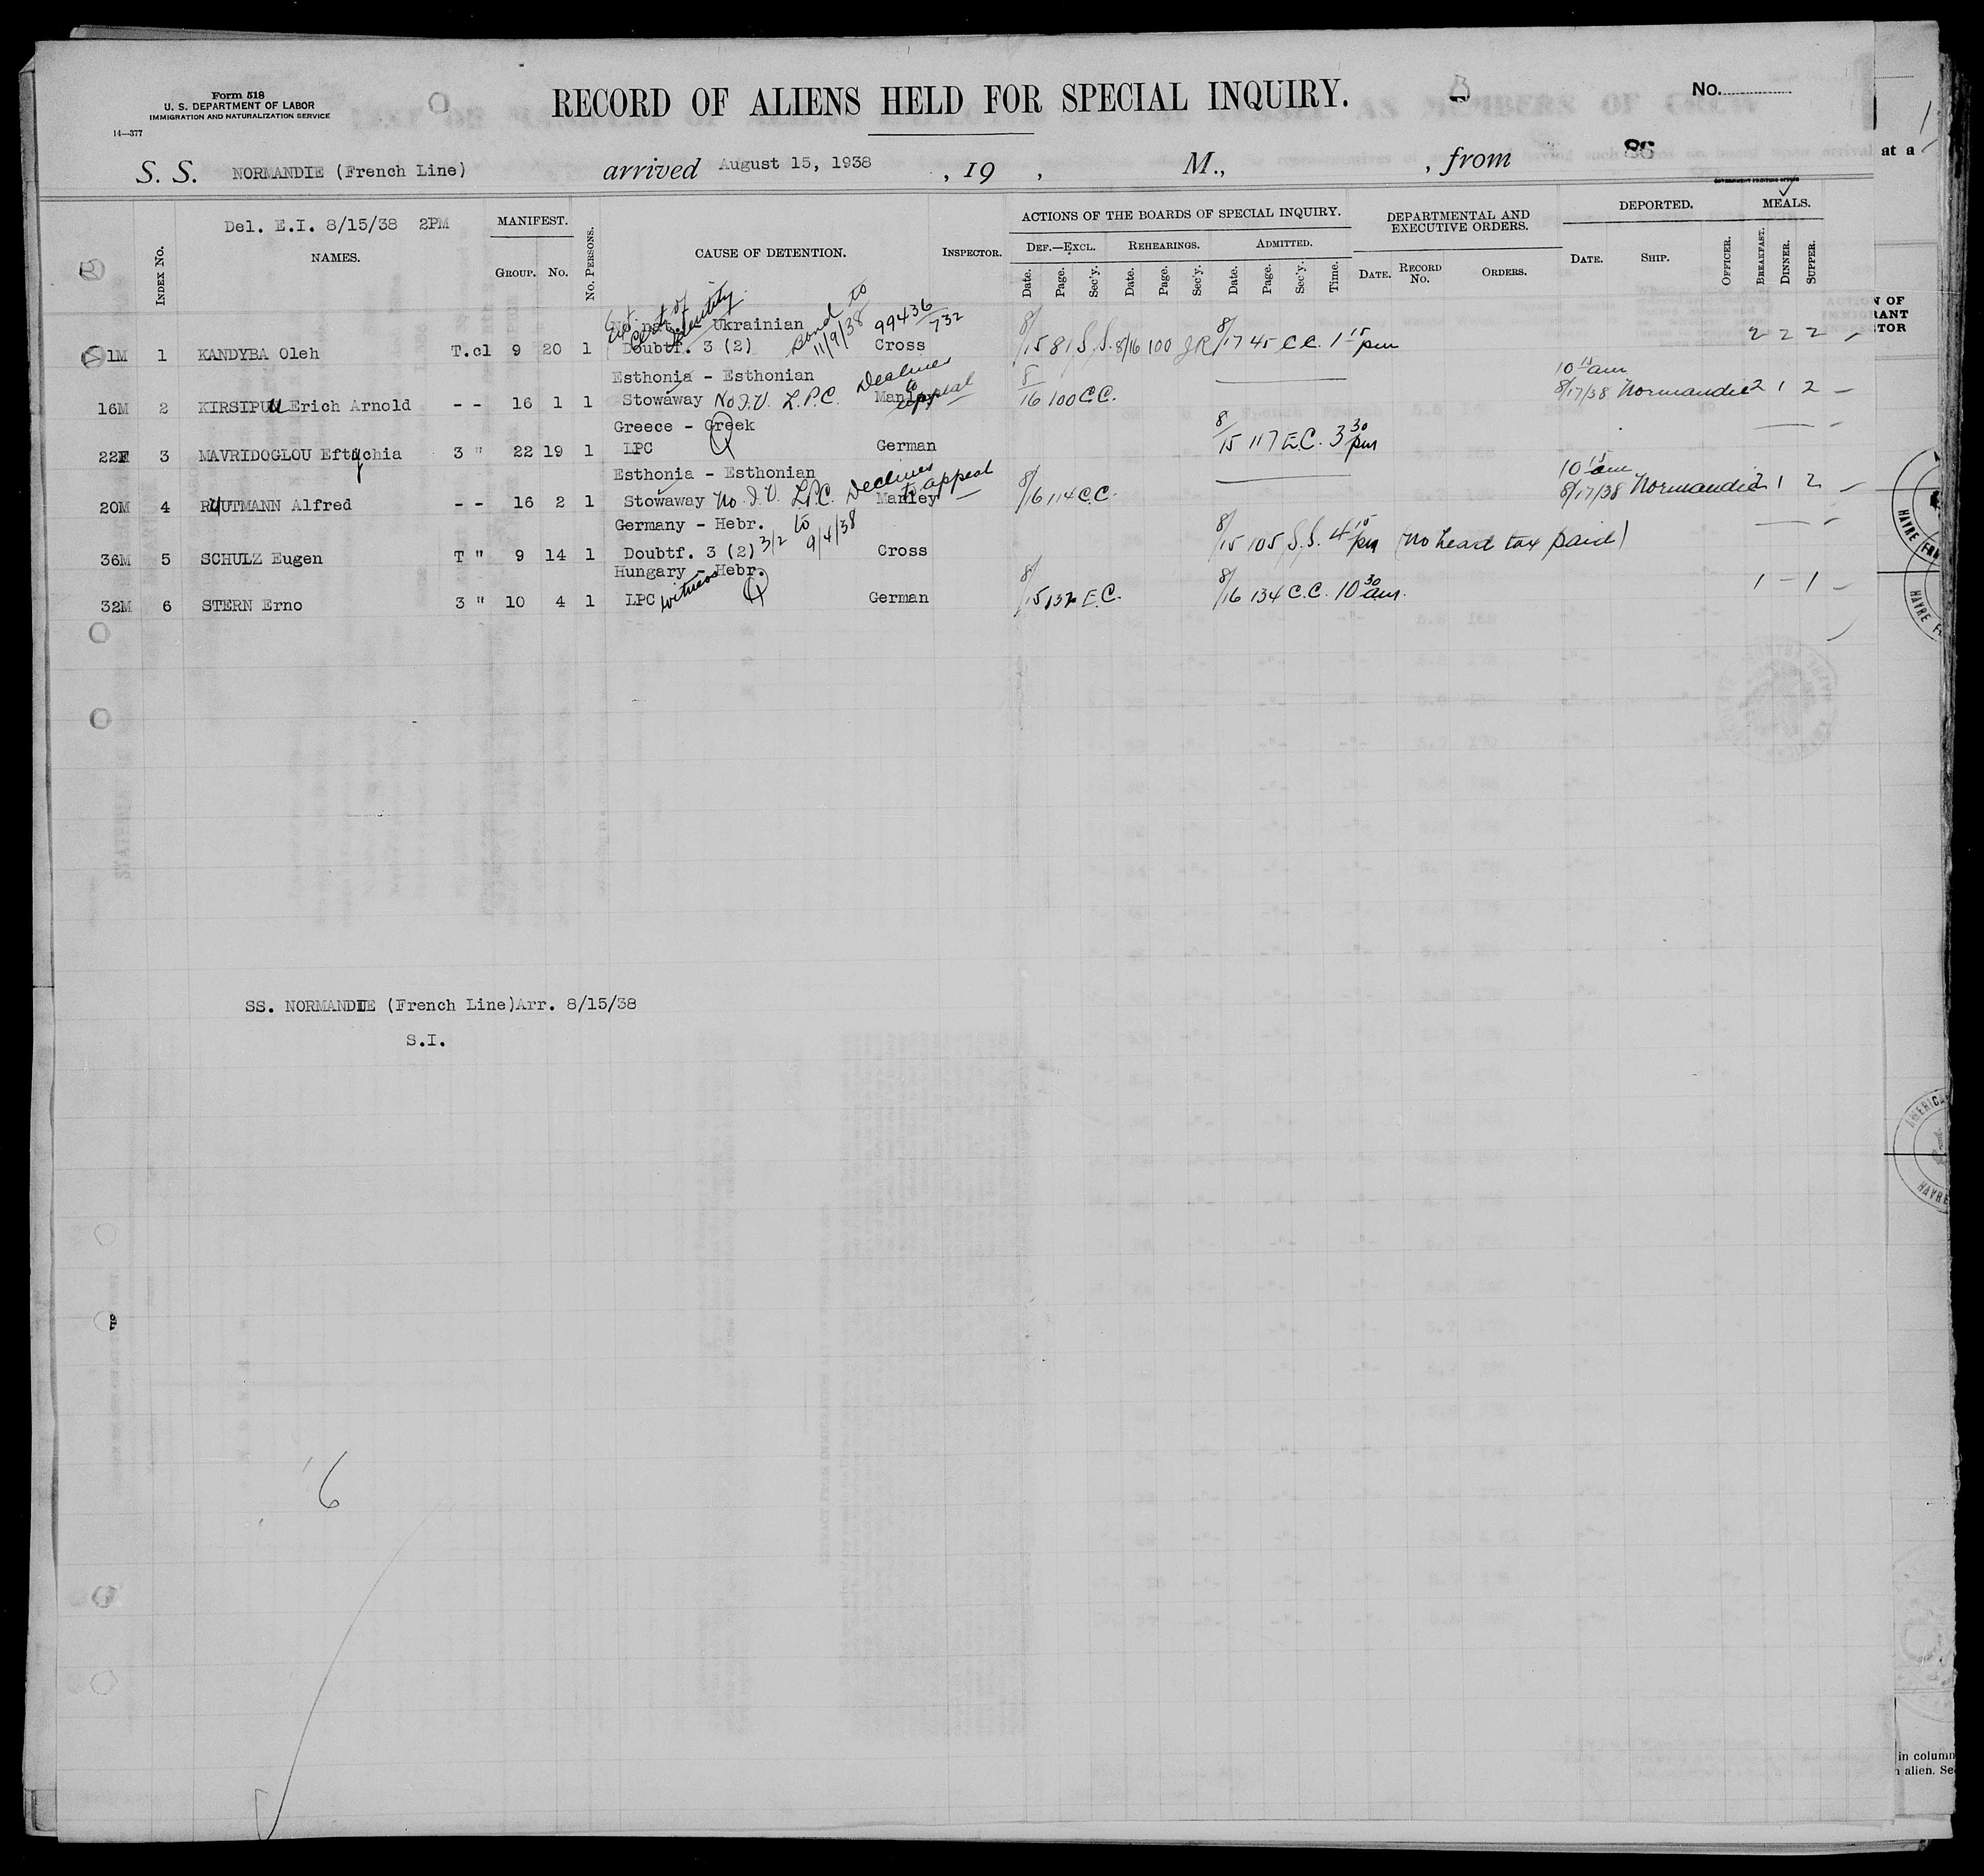 Form 518
U. S. DEPARTMENT OF LABOR
IMMIGRATION AND NATURALIZATION SERVICE
14—377
RECORD OF ALIENS HELD FOR SPECIAL INQUIRY.
B
No.
S. S. NORMANDIE (French Line) arrived August 15, 1938 , 19 , M., , from 86
at a
Del. E.I. 8/15/38 2PM
INDEX No.
NAMES.
MANIFEST.
GROUP. No.
No. PERSONS.
CAUSE OF DETENTION.
INSPECTOR.
ACTIONS OF THE BOARDS OF SPECIAL INQUIRY.
DEF.—EXCL. REHEARINGS. ADMITTED.
Date. Page. Sec'y. Date. Page. Sec'y. Date. Page. Sec'y. Time.
DEPARTMENTAL AND EXECUTIVE ORDERS.
DATE. RECORD No. ORDERS.
DEPORTED.
DATE. SHIP. OFFICER.
MEALS.
BREAKFAST. DINNER. SUPPER.
N OF
RANT
TOR
Ukrainian 99436/732
1M 1 KANDYBA Oleh T.cl 9 20 1 Doubtf. 3 (2) Bond to 11/9/38 Cross 8/15 81 S.S. 8/16 100 JR 8/17 45 C.C. 1 15 pm 2 2 2
Esthonia - Esthonian
16M 2 KIRSIPUU Erich Arnold - - 16 1 1 Stowaway No I.V. L.P.C. Declines to appeal Manley 8/16 100 C.C. 10 15 am 8/17/38 Normandie 2 1 2
Greece - Greek
22F 3 MAVRIDOGLOU Eftychia 3 " 22 19 1 LPC German 8/15 117 E.C. 3 30 pm
Esthonia - Esthonian
20M 4 RUUTMANN Alfred - - 16 2 1 Stowaway No I.V. L.P.C. Declines to appeal Manley 8/16 114 C.C. 10 15 am 8/17/38 Normandie 2 1 2
Germany - Hebr.
36M 5 SCHULZ Eugen T " 9 14 1 Doubtf. 3 (2) 3/2 to 9/4/38 Cross 8/15 105 S.S. 4 15 pm (No head tax paid)
Hungary - Hebr.
32M 6 STERN Erno 3 " 10 4 1 LPC witness German 8/15 132 E.C. 8/16 134 C.C. 10 30 am. 1 - 1
SS. NORMANDIE (French Line)Arr. 8/15/38
S.I.
6
HAVRE
HAVRE
AMERICA
HAVRE
in column
alien. See